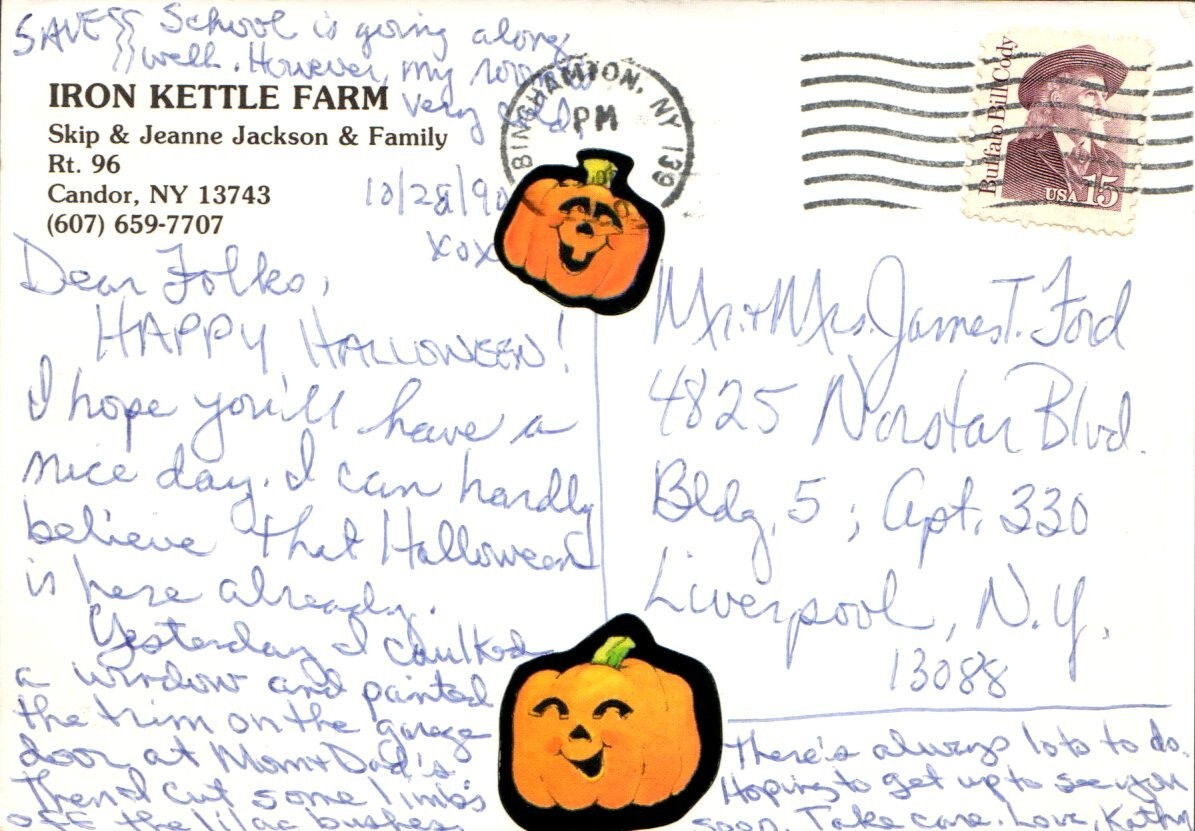 SAVE School is going along
well. However, my room is
very cold.
IRON KETTLE FARM
Skip & Jeanne Jackson & Family
Rt. 96
Candor, NY 13743
(607) 659-7707
10/28/90
xox
BINGHAMTON, NY 139
PM
Buffalo Bill Cody
USA 15
Dear Folks,
HAPPY HALLOWEEN!
I hope you'll have a
nice day. I can hardly
believe that Halloween
is here already.
Yesterday I caulked
a window and painted
the trim on the garage
door at Mom + Dad's.
Then I cut some limbs
off the lilac bushes.
Mr. + Mrs. James T. Ford
4825 Norstar Blvd.
Bldg. 5; Apt. 330
Liverpool, N.Y.
13088
There's always lots to do.
Hoping to get up to see you
soon. Take care. Love, Kathy